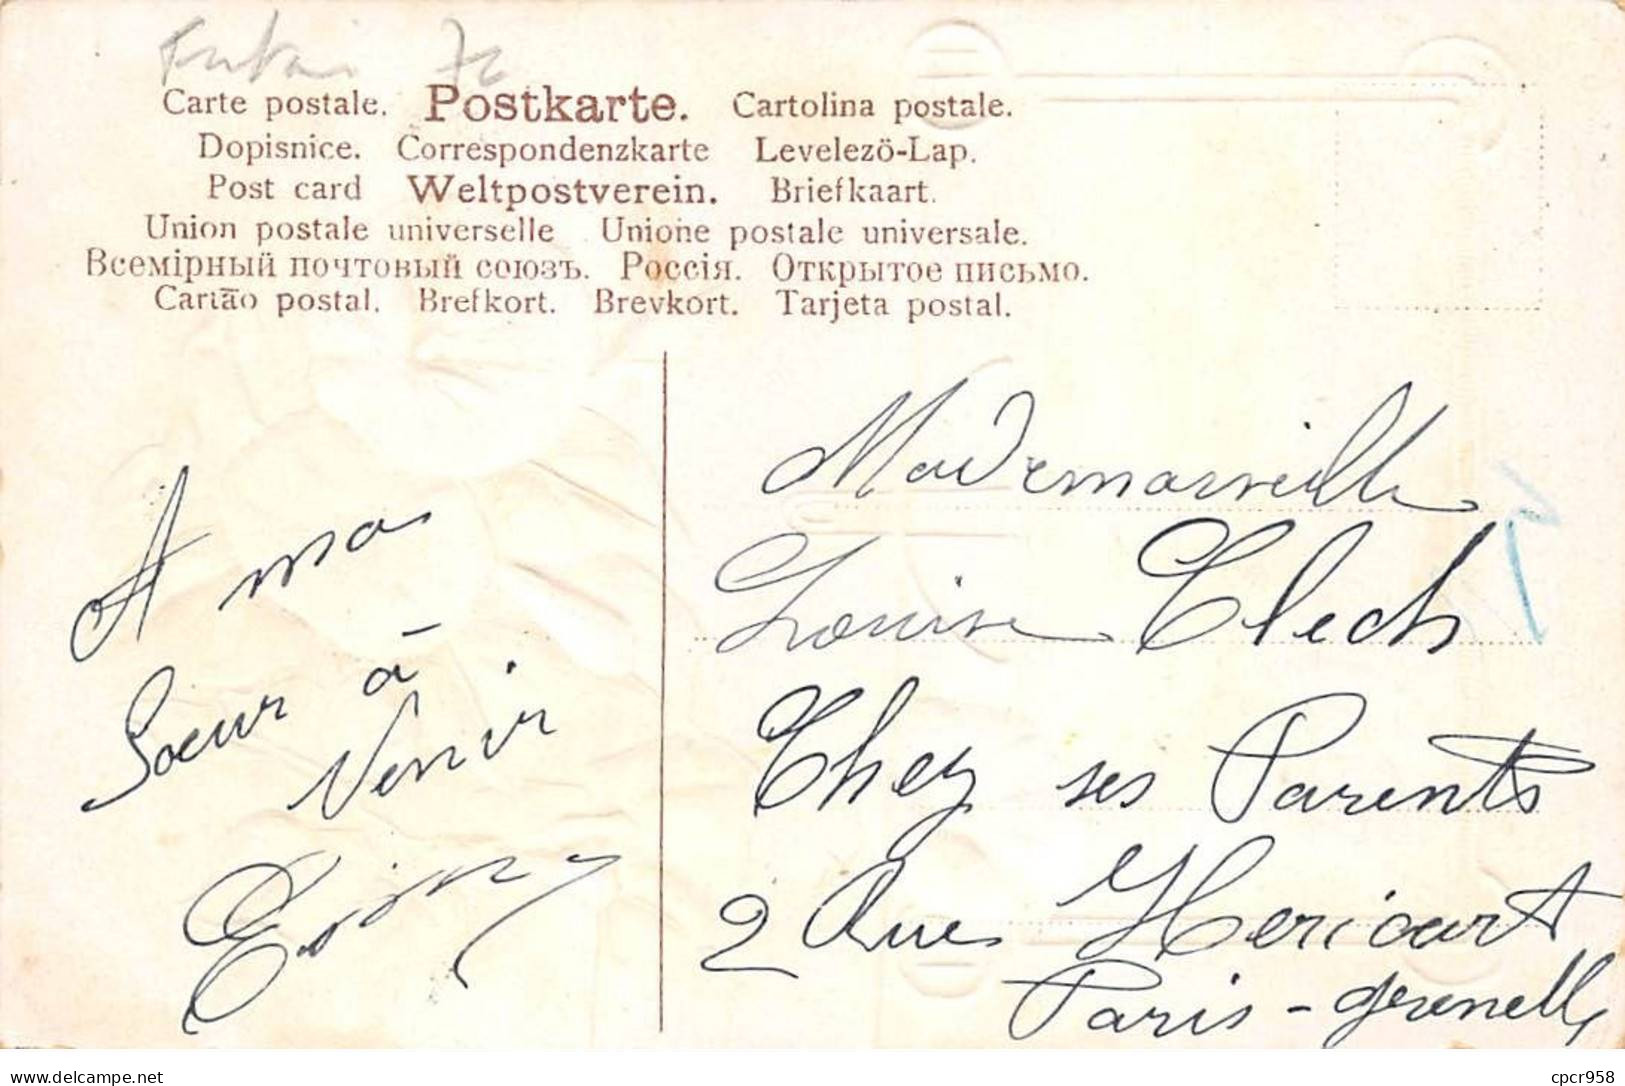 Carte postale. Postkarte. Cartolina postale.
Dopisnice. Correspondenzkarte Levelezö-Lap.
Post card Weltpostverein. Briefkaart.
Union postale universelle Unione postale universale.
Всемірный почтовый союзъ. Россія. Открытое письмо.
Cartão postal. Brefkort. Brevkort. Tarjeta postal.
A ma
Soeur à
Venir
Mademoiselle
Louise Clech
Chez ses Parents
2 Rue Hericart
Paris - grenelle
delcampe.net
cpcr958